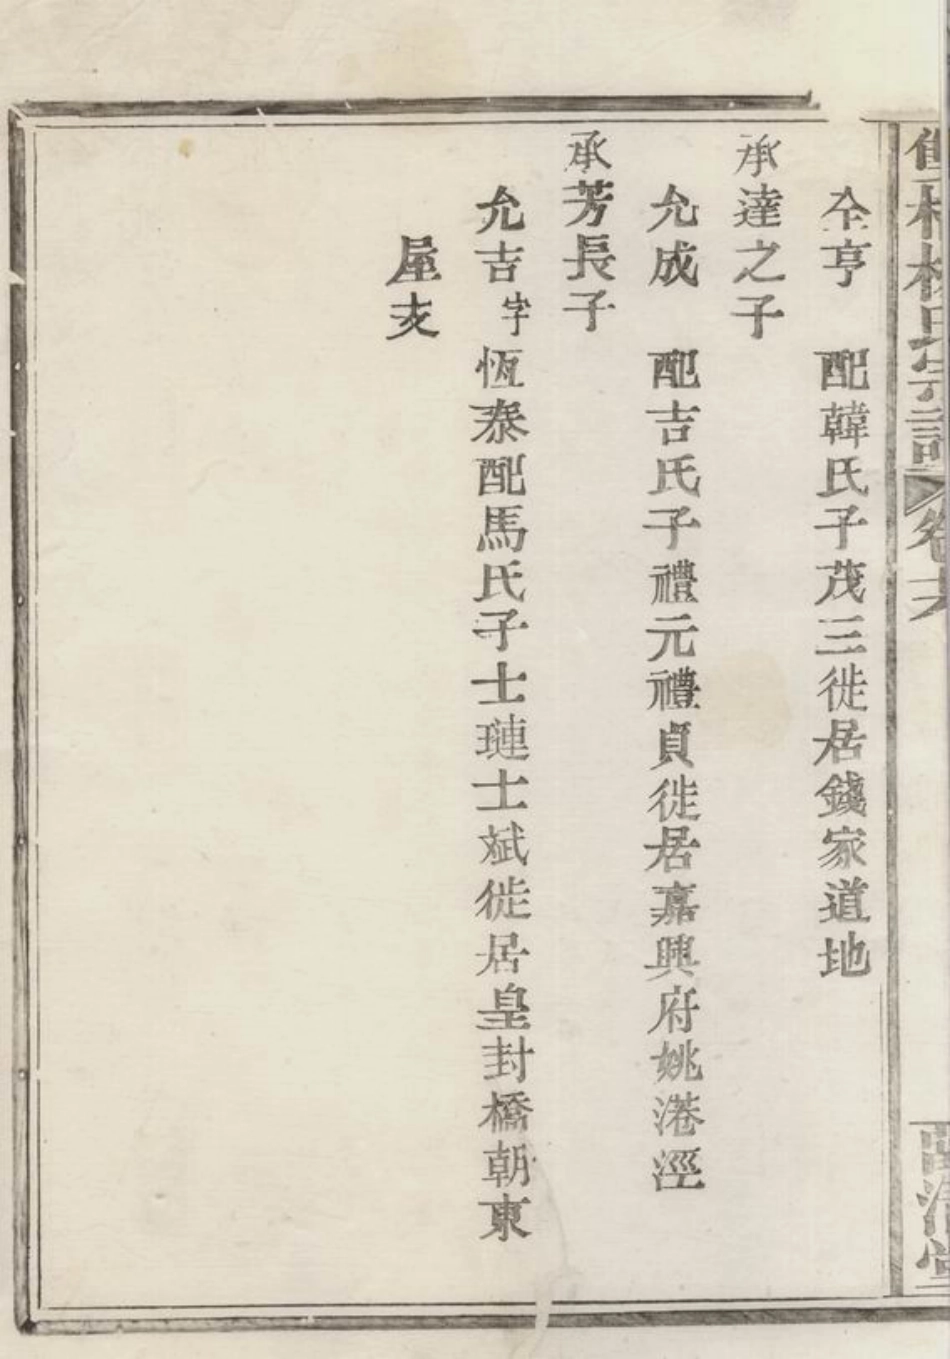 仝亨　配韓氏子茂三徙居錢家道地
承達之子
允成　配吉氏子禮元禮貞徙居嘉興府姚港涇
承芳長子
允吉字恆泰配馬氏子士璉士斌徙居皇封橋朝東
屋支
氏宗譜　卷六